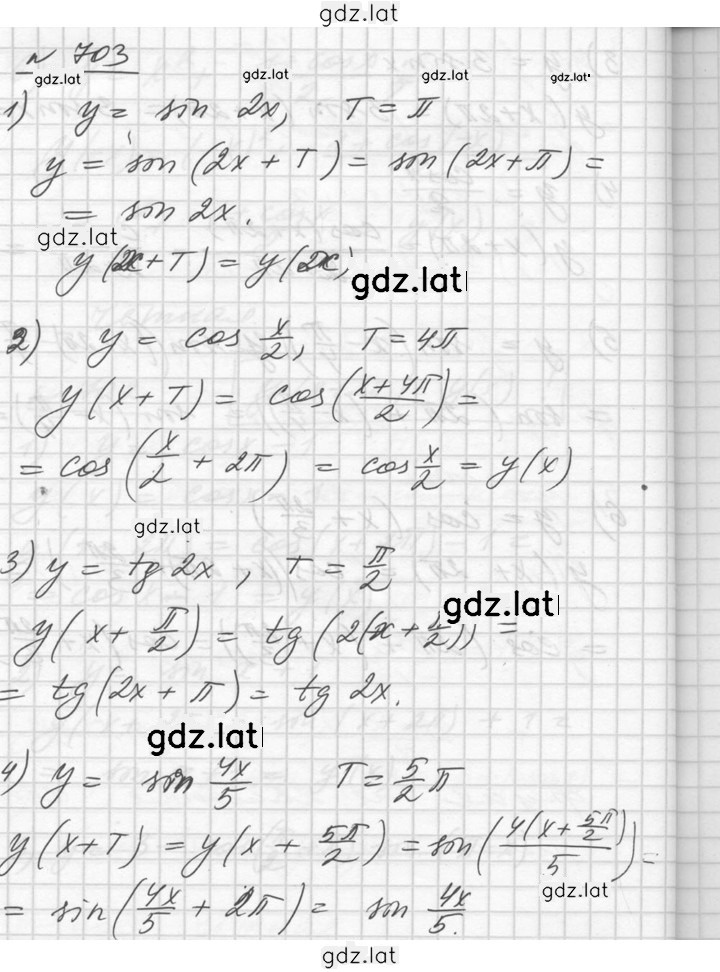 gdz.lat
№ 703
gdz.lat gdz.lat gdz.lat gdz.lat
1) y = sin 2x, T = π
y = sin (2x + T) = sin (2x + π) =
= sin 2x.
gdz.lat
y (2x + T) = y (2x)
gdz.lat
2) y = cos x/2, T = 4π
y (x + T) = cos ((x + 4π)/2) =
= cos (x/2 + 2π) = cos x/2 = y (x)
gdz.lat
3) y = tg 2x, T = π/2
gdz.lat
y (x + π/2) = tg (2(x + π/2)) =
= tg (2x + π) = tg 2x.
gdz.lat
4) y = sin 4x/5 T = 5/2 π
y (x + T) = y (x + 5π/2) = sin (4(x + 5π/2)/5) =
gdz.lat
= sin (4x/5 + 2π) = sin 4x/5.
gdz.lat